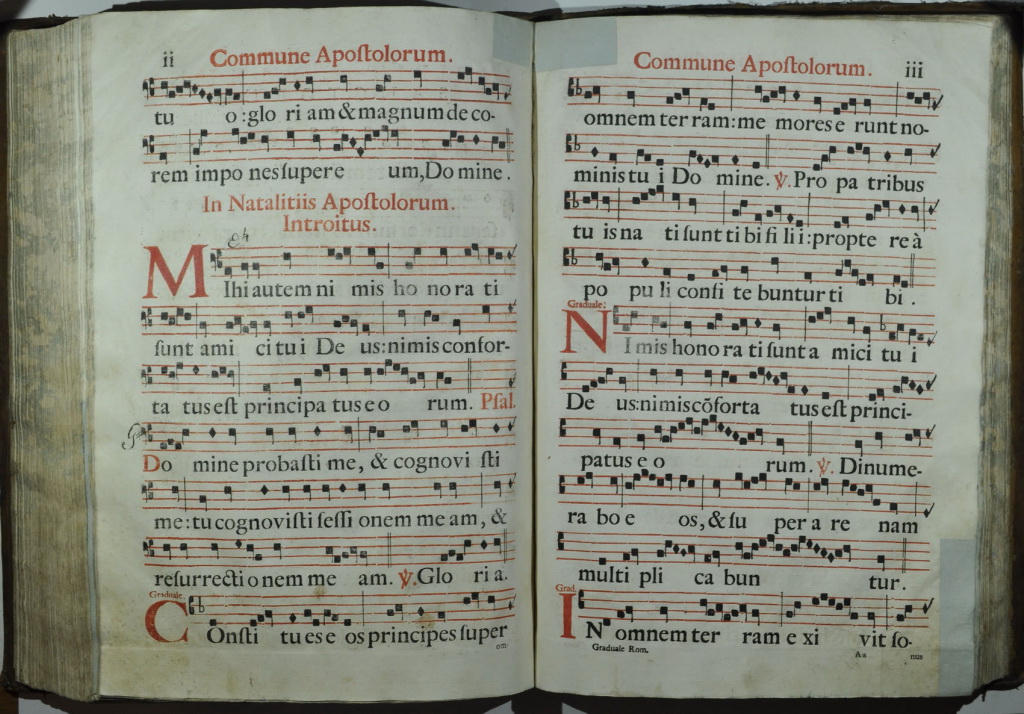 ii Commune Apoſtolorum.
tu o:glo ri am & magnum de co-
rem impo nes ſuper e um, Do mine.
In Natalitiis Apoſtolorum.
Introitus.
MIhi autem ni mis ho no ra ti
ſunt ami ci tu i De us: nimis confor-
ta tus eſt principa tus e o rum. Pſal.
Do mine probaſti me, & cognovi ſti
me: tu cognoviſti ſeſſi onem me am, &
reſurrecti onem me am. ℣. Glo ri a.
Graduale.
COnſti tu es e os principes ſuper
om-
Commune Apoſtolorum. iii
omnem ter ram: me mores e runt no-
minis tu i Do mine. ℣. Pro pa tribus
tu is na ti ſunt ti bi fi li i: propte re à
po pu li confi te buntur ti bi.
Graduale.
NImis hono ra ti ſunt a mici tu i
De us: nimis cõforta tus eſt princi-
patus e o rum. ℣. Dinume-
ra bo e os, & ſu per a re nam
multi pli ca bun tur.
Grad.
IN omnem ter ram e xi vit ſo-
Graduale Rom. Aa nus